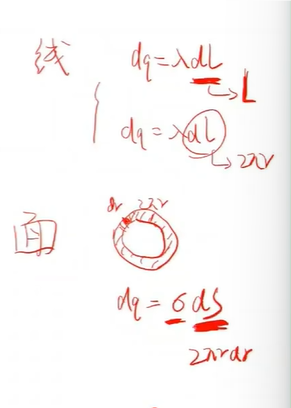 线
dq=λdL
L
dq=λdl
2πr
面
dr 2πr
dq = σ ds
2πrdr